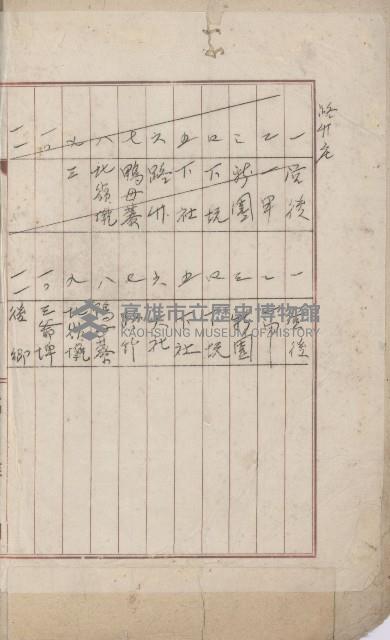 路竹庄
一 營後
二 一甲
三 新園
四 下坑
五 下社
六 路竹
七 鴨母藔
八 北嶺墘
九 三
一〇
一一
一 營後
二 一甲
三 新園
四 下坑
五 下社
六 大社
七 路竹
八 鴨母藔
九 北嶺墘
一〇 三爺埤
一一 後鄉
高雄市立歷史博物館
KAOHSIUNG MUSEUM OF HISTORY